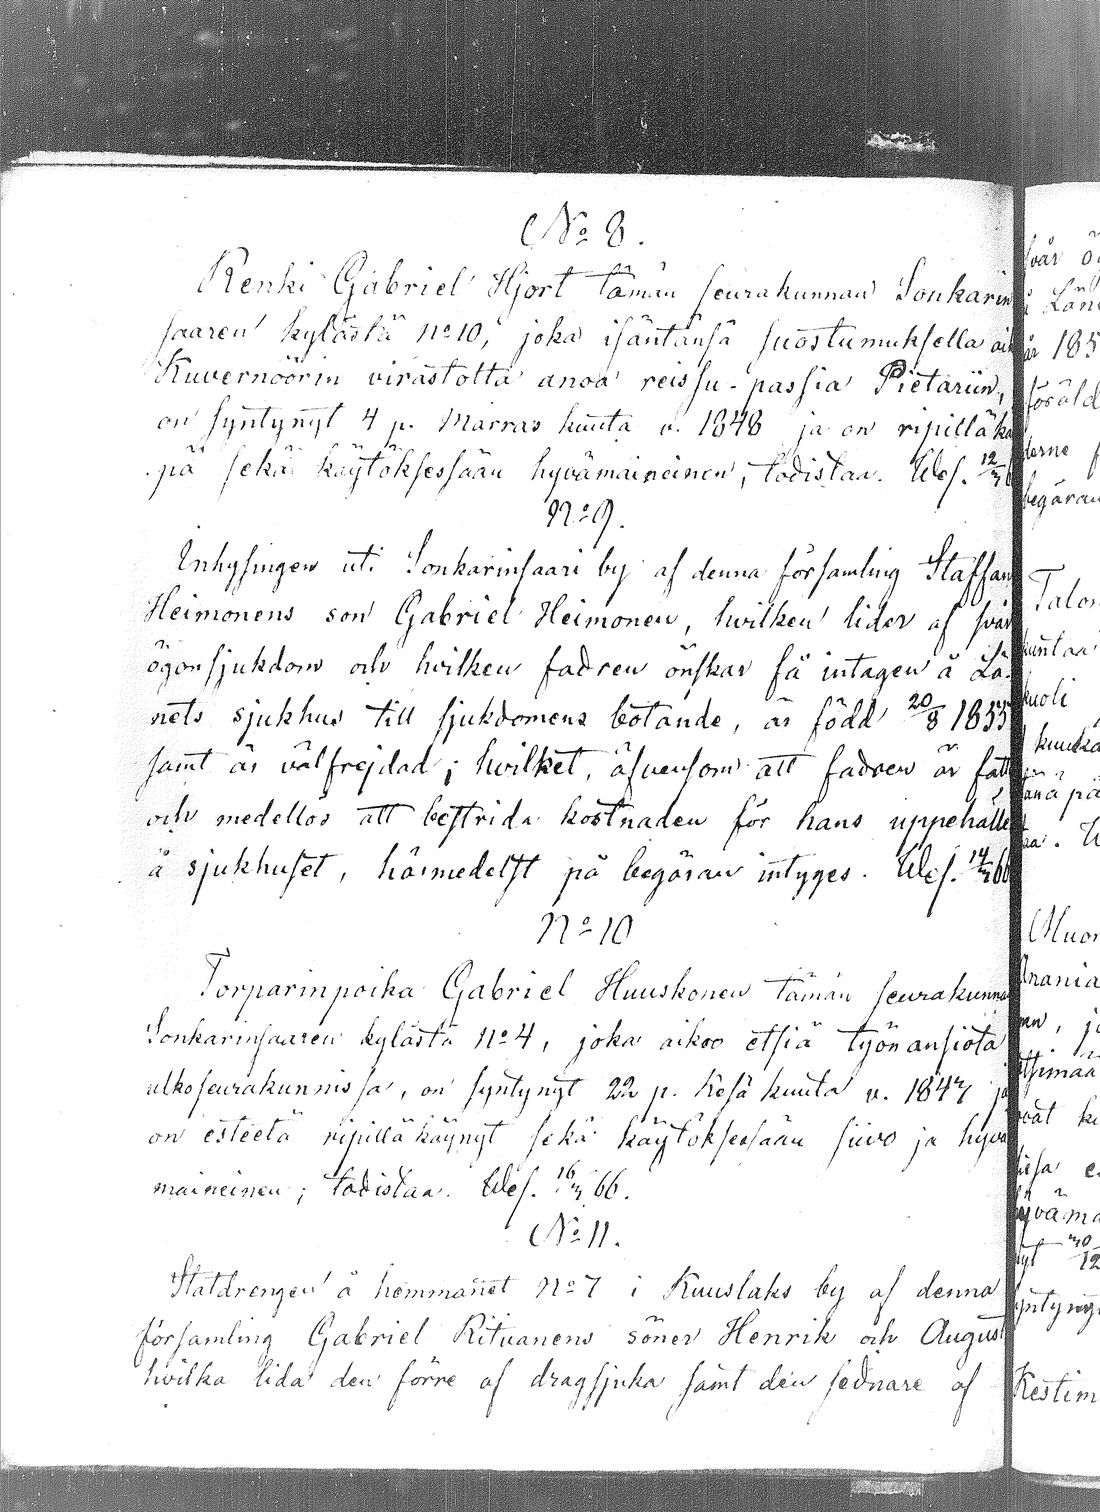 No 8.
Renki Gabriel Hjort tämän seurakunnan Sonkarin
saaren kylästä No 10, joka isäntänsä suostumuksella
Kuvernöörin virastolta anoa reissu-passia Pietariin,
on syntynyt 4 p. Marras kuuta v. 1848 ja on ripilläkä
pä sekä käytöksessään hyvämaineinen, todistaa. Wes. 12/3
No 9.
Inhysingen uti Sonkarinsaari by af denna församling Staffan
Heimonens son Gabriel Heimonen, hvilken lider af svår
ögonsjukdom och hvilken fadren önskar få intagen å Lä-
nets sjukhus till sjukdomens botande, är född 20/8 1855
samt är välfrejdad; hvilket, äfvensom att fadren är fatt
och medellös att bestrida kostnaden för hans uppehälle
å sjukhuset, härmedelst på begäran intyges. Wes. 14/3 66
No 10
Torparinpoika Gabriel Huuskonen tämän seurakunna
Sonkarinsaaren kylästä No 4, joka aikoo etsiä työnansiota
ulkoseurakunnissa, on syntynyt 22 p. Kesä kuuta v. 1847 ja
on esteetä ripilläkäynyt sekä käytöksessään siivo ja hyvä
maineinen; todistaa. Wes. 16/3 66.
No 11.
Statdrengen å hemmanet No 7 i Kuuslaks by af denna
församling Gabriel Rituanens söner Henrik och August
hvilka lida den förre af dragsjuka samt den sednare af